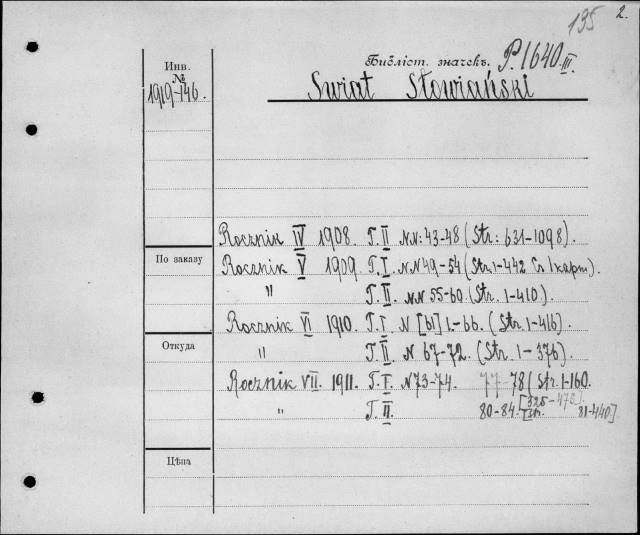 135 2.
Инв.
№
1919-146.
Библіот. значекъ. P.1640 III.
Swiat Słowiański
Rocznik IV 1908. T.II N.N: 43-48 (Str: 631-1098).
По заказу
Rocznik V 1909. T.I. N.N 49-54 (Str. 1-442
" T.II. N.N 55-60. (Str. 1-410).
Rocznik VI 1910. T.I N [61] -66. (Str. 1-416).
Откуда
" T.II. N 67-72. (Str. 1-376).
Rocznik VII. 1911. T.I. N 73-74. 77 78 (Str. 1-160.
[325-472].
" T.II. 80-84. 81-440]
Цѣна